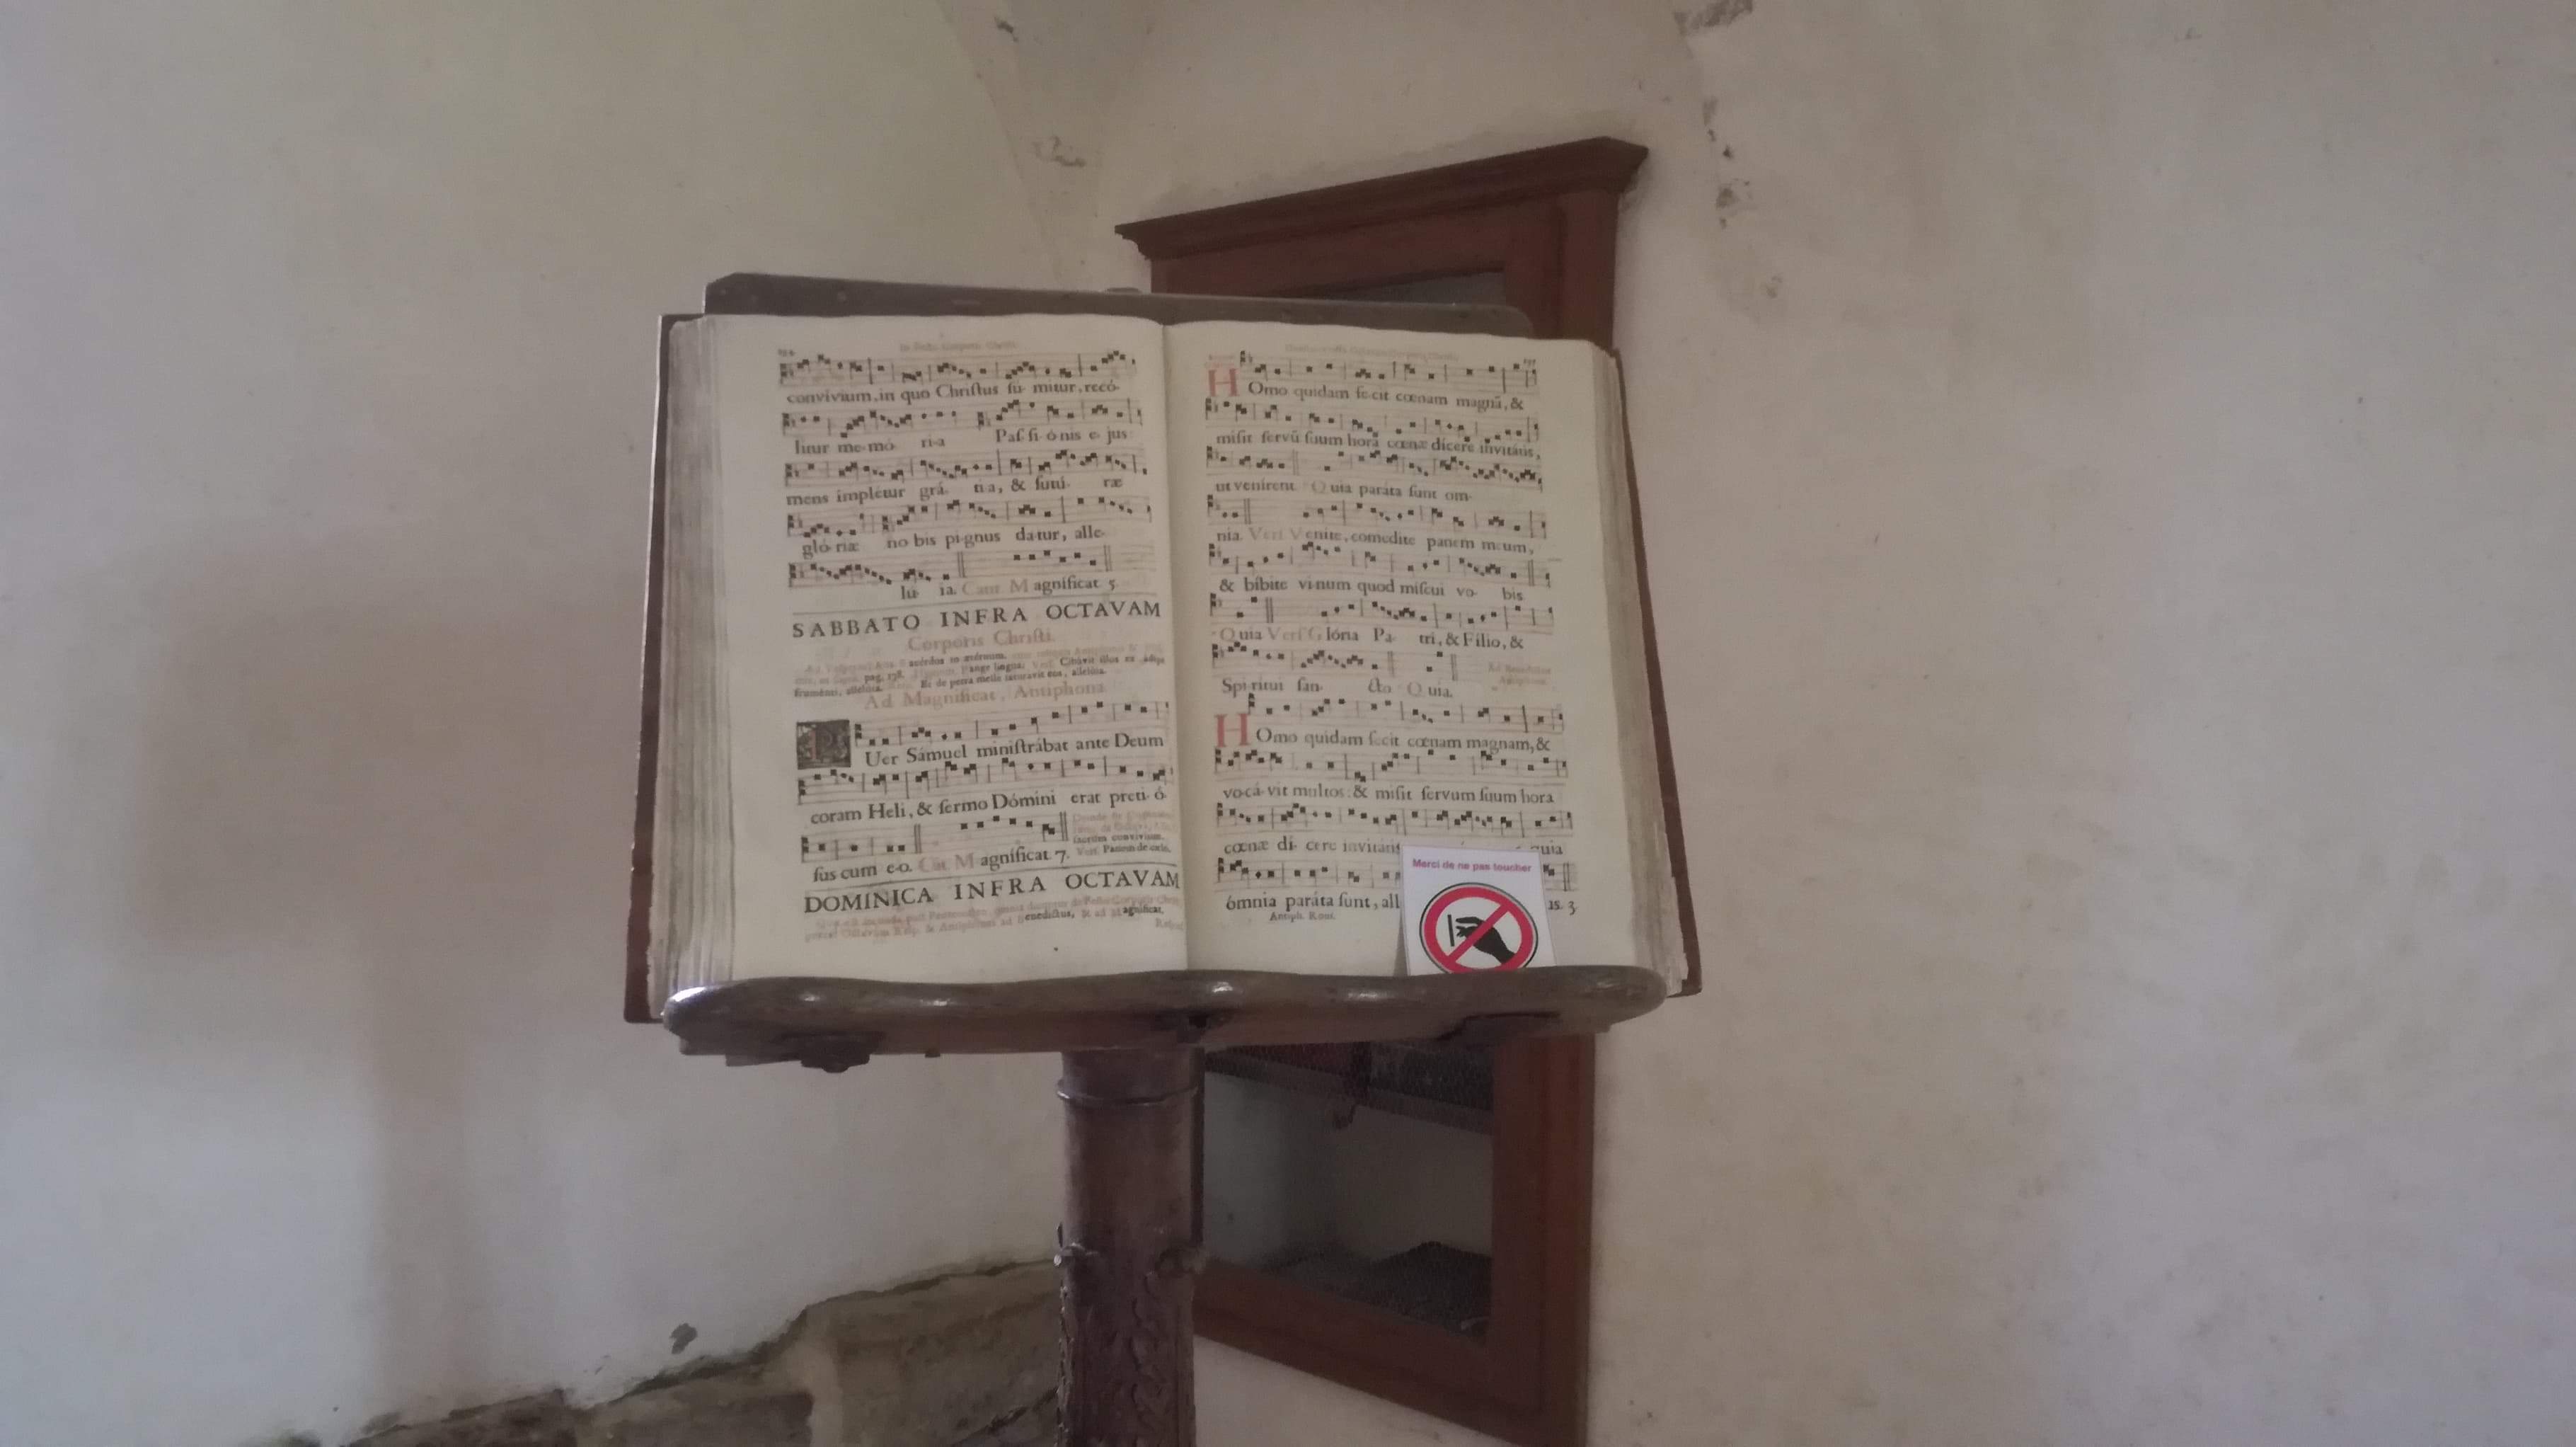 In Festo Corporis Christi.
convívium, in quo Chriſtus ſú- mitur, recó-
litur me-mó- ri-a Paſ-ſi-ó-nis e-jus
mens implétur grá- ti-a, & futú- ræ
gló-riæ no-bis pi-gnus da-tur, alle-
lú- ia. Cant. Magníficat. 5.
SABBATO INFRA OCTAVAM
Corporis Chriſti.
pag. 178. Pange lingua; Verſ. Cibávit illos ex ádipe
fruménti, allelúia. Et de petra melle ſaturávit eos, allelúia.
Ad Magnificat, Antiphona
PUer Sámuel miniſtrábat ante Deum
coram Heli, & ſermo Dómini erat preti-ó-
ſus cum e-o. Cãt. Magníficat. 7.
convívium.
Verſ. Panem de cælo,
DOMINICA INFRA OCTAVAM
Benedictus, & ad Magnificat,
HOmo quidam fe-cit cœnam magnã, &
miſit ſervũ ſuum horâ cœnæ dícere invitátis,
ut venírent * Quia paráta ſunt om-
nia. Verſ. Veníte, comédite panem meum,
& bíbite vi-num quod míſcui vo- bis.
* Quia Verſ. Glória Pa- tri, & Fílio, &
Spi-rítui ſan- cto * Quia.
Ad Benedictus
Antiphona.
HOmo quidam fecit cœnam magnam, &
vo-cá-vit multos: & miſit ſervum ſuum hora
cœnæ dí- cere invitátis quia
ómnia paráta ſunt, all 15. 3.
Antiph. Rom.
Merci de ne pas toucher